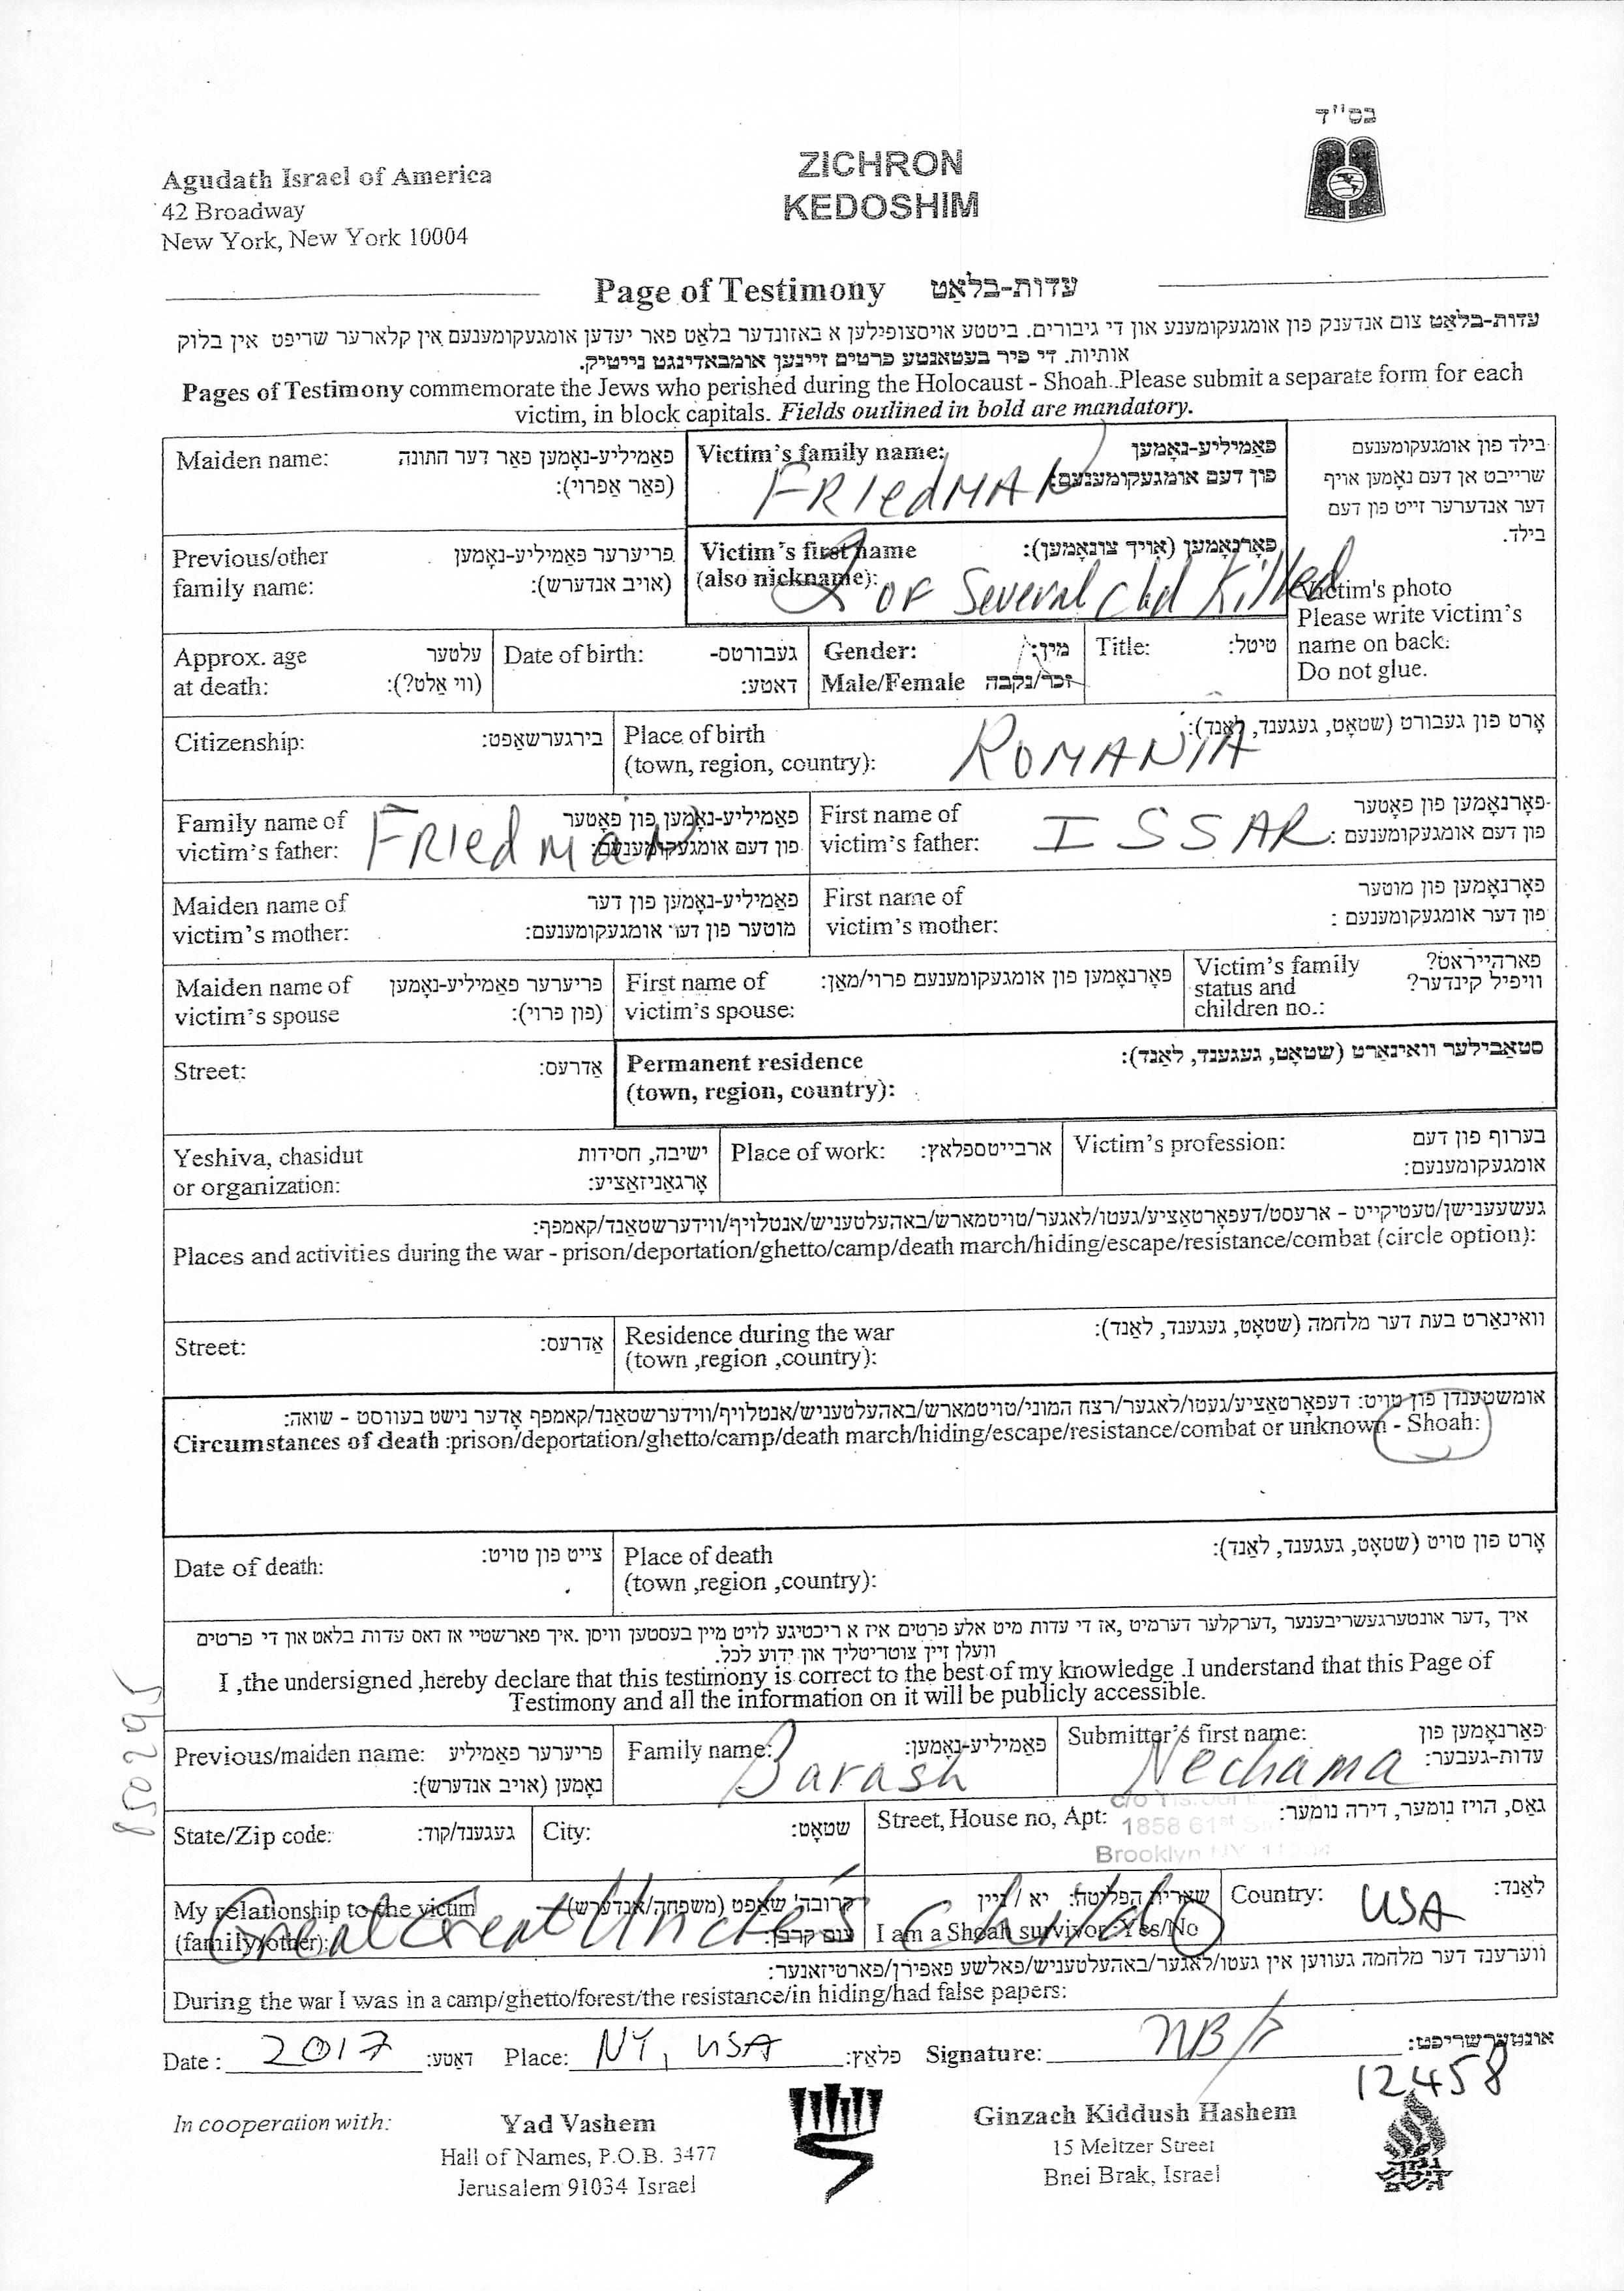 בס"ד
Agudath Israel of America
42 Broadway
New York, New York 10004
ZICHRON
KEDOSHIM
Page of Testimony עדות-בלאַט
עדות-בלאַט צום אנדענק פון אומגעקומענע און די גיבורים. ביטטע אויסצופילען א באזונדער בלאט פאר יעדען אומגעקומענעם אין קלארער שריפט אין בלוק
אותיות. די פיר בעטאנטע פרטים זיינען אומבאדינגט נייטיק.
Pages of Testimony commemorate the Jews who perished during the Holocaust - Shoah. Please submit a separate form for each
victim, in block capitals. Fields outlined in bold are mandatory.
Maiden name: פאַמיליע-נאָמען פאר דער חתונה
(פאַר אפרוי):
Victim's family name: פאַמיליע-נאָמען
פון דעם אומגעקומענעם:
FRIEdMAN
בילד פון אומגעקומענעם
שרייבט אן דעם נאָמען אויף
דער אנדערער זייט פון דעם
בילד.
Previous/other פריערער פאַמיליע-נאָמען
family name: (אויב אנדערש):
Victim's first name פאָרנאָמען (אויך צונאָמען):
(also nickname):
2 OF Several chd Killed
Victim's photo
Please write victim's
name on back.
Do not glue.
Approx. age עלטער
at death: (ווי אלט?):
Date of birth: געבורטס-
דאטע:
Gender: מין:
Male/Female זכר/נקבה
Title: טיטל:
Citizenship: בירגערשאַפט:
Place of birth אָרט פון געבורט (שטאָט, געגענד, לאַנד):
(town, region, country): ROMANIA
Family name of פאַמיליע-נאָמען פון פאָטער
victim's father: פון דעם אומגעקומענעם:
FRIEdMaN
First name of פאָרנאָמען פון פאָטער-
victim's father: פון דעם אומגעקומענעם:
ISSAR
Maiden name of פאַמיליע-נאָמען פון דער
victim's mother: מוטער פון דער אומגעקומענעם:
First name of פאָרנאָמען פון מוטער
victim's mother: פון דער אומגעקומענעם:
Maiden name of פריערער פאַמיליע-נאָמען
victim's spouse (פון פרוי):
First name of פאָרנאָמען פון אומגעקומענעם פרוי/מאַן:
victim's spouse:
Victim's family פארהייראט?
status and וויפיל קינדער?
children no.:
Street: אַדרעס:
Permanent residence סטאַבילער וואינאָרט (שטאָט, געגענד, לאַנד):
(town, region, country):
Yeshiva, chasidut ישיבה, חסידות
or organization: אָרגאַניזאַציע:
Place of work: ארבייטספלאץ:
Victim's profession: בערוף פון דעם
אומגעקומענעם:
געשעענישן/טעטיקייט - ארעסט/דעפאָרטאַציע/געטו/לאגער/טויטמארש/באהעלטעניש/אנטלויף/ווידערשטאַנד/קאמפף:
Places and activities during the war - prison/deportation/ghetto/camp/death march/hiding/escape/resistance/combat (circle option):
Street: אַדרעס:
Residence during the war וואינאָרט בעת דער מלחמה (שטאָט, געגענד, לאַנד):
(town ,region ,country):
אומשטענדן פון טויט: דעפאָרטאַציע/געטו/לאגער/רצח המוני/טויטמארש/באהעלטעניש/אנטלויף/ווידערשטאַנד/קאמפף אָדער נישט בעוווסט - שואה:
Circumstances of death :prison/deportation/ghetto/camp/death march/hiding/escape/resistance/combat or unknown - Shoah:
Date of death: צייט פון טויט:
Place of death אָרט פון טויט (שטאָט, געגענד, לאַנד):
(town ,region ,country):
איך ,דער אונטערגעשריבענער ,דערקלער דערמיט ,אז די עדות מיט אלע פרטים איז א ריכטיגע לויט מיין בעסטען וויסן .איך פארשטיי אז דאס עדות בלאט און די פרטים
וועלן זיין צוטריטליך און ידוע לכל.
I ,the undersigned ,hereby declare that this testimony is correct to the best of my knowledge .I understand that this Page of
Testimony and all the information on it will be publicly accessible.
850295
Previous/maiden name: פריערער פאַמיליע
נאָמען (אויב אנדערש):
Family name: פאַמיליע-נאָמען:
Barash
Submitter's first name: פאָרנאָמען פון
עדות-געבער:
Nechama
State/Zip code: געגענד/קוד:
City: שטאָט:
Street, House no, Apt: גאַס, הויז נומער, דירה נומער:
c/o
1858 61st
Brooklyn NY
My relationship to the victim קרובה' שאַפט (משפחה/אנדערש)
(family/other): צום קרבן:
Great Great Uncle's child
שארית הפליטה: יא / ניין
I am a Shoah survivor :Yes/No
Country: לאַנד:
USA
ווערענד דער מלחמה געווען אין געטו/לאגער/באהעלטעניש/פאלשע פאפירן/פארטיזאנער:
During the war I was in a camp/ghetto/forest/the resistance/in hiding/had false papers:
Date : 2017 דאַטע: Place: NY, USA פלאַץ: Signature: NB אונטערשריפט:
12458
In cooperation with:
Yad Vashem
Hall of Names, P.O.B. 3477
Jerusalem 91034 Israel
Ginzach Kiddush Hashem
15 Meltzer Street
Bnei Brak, Israel